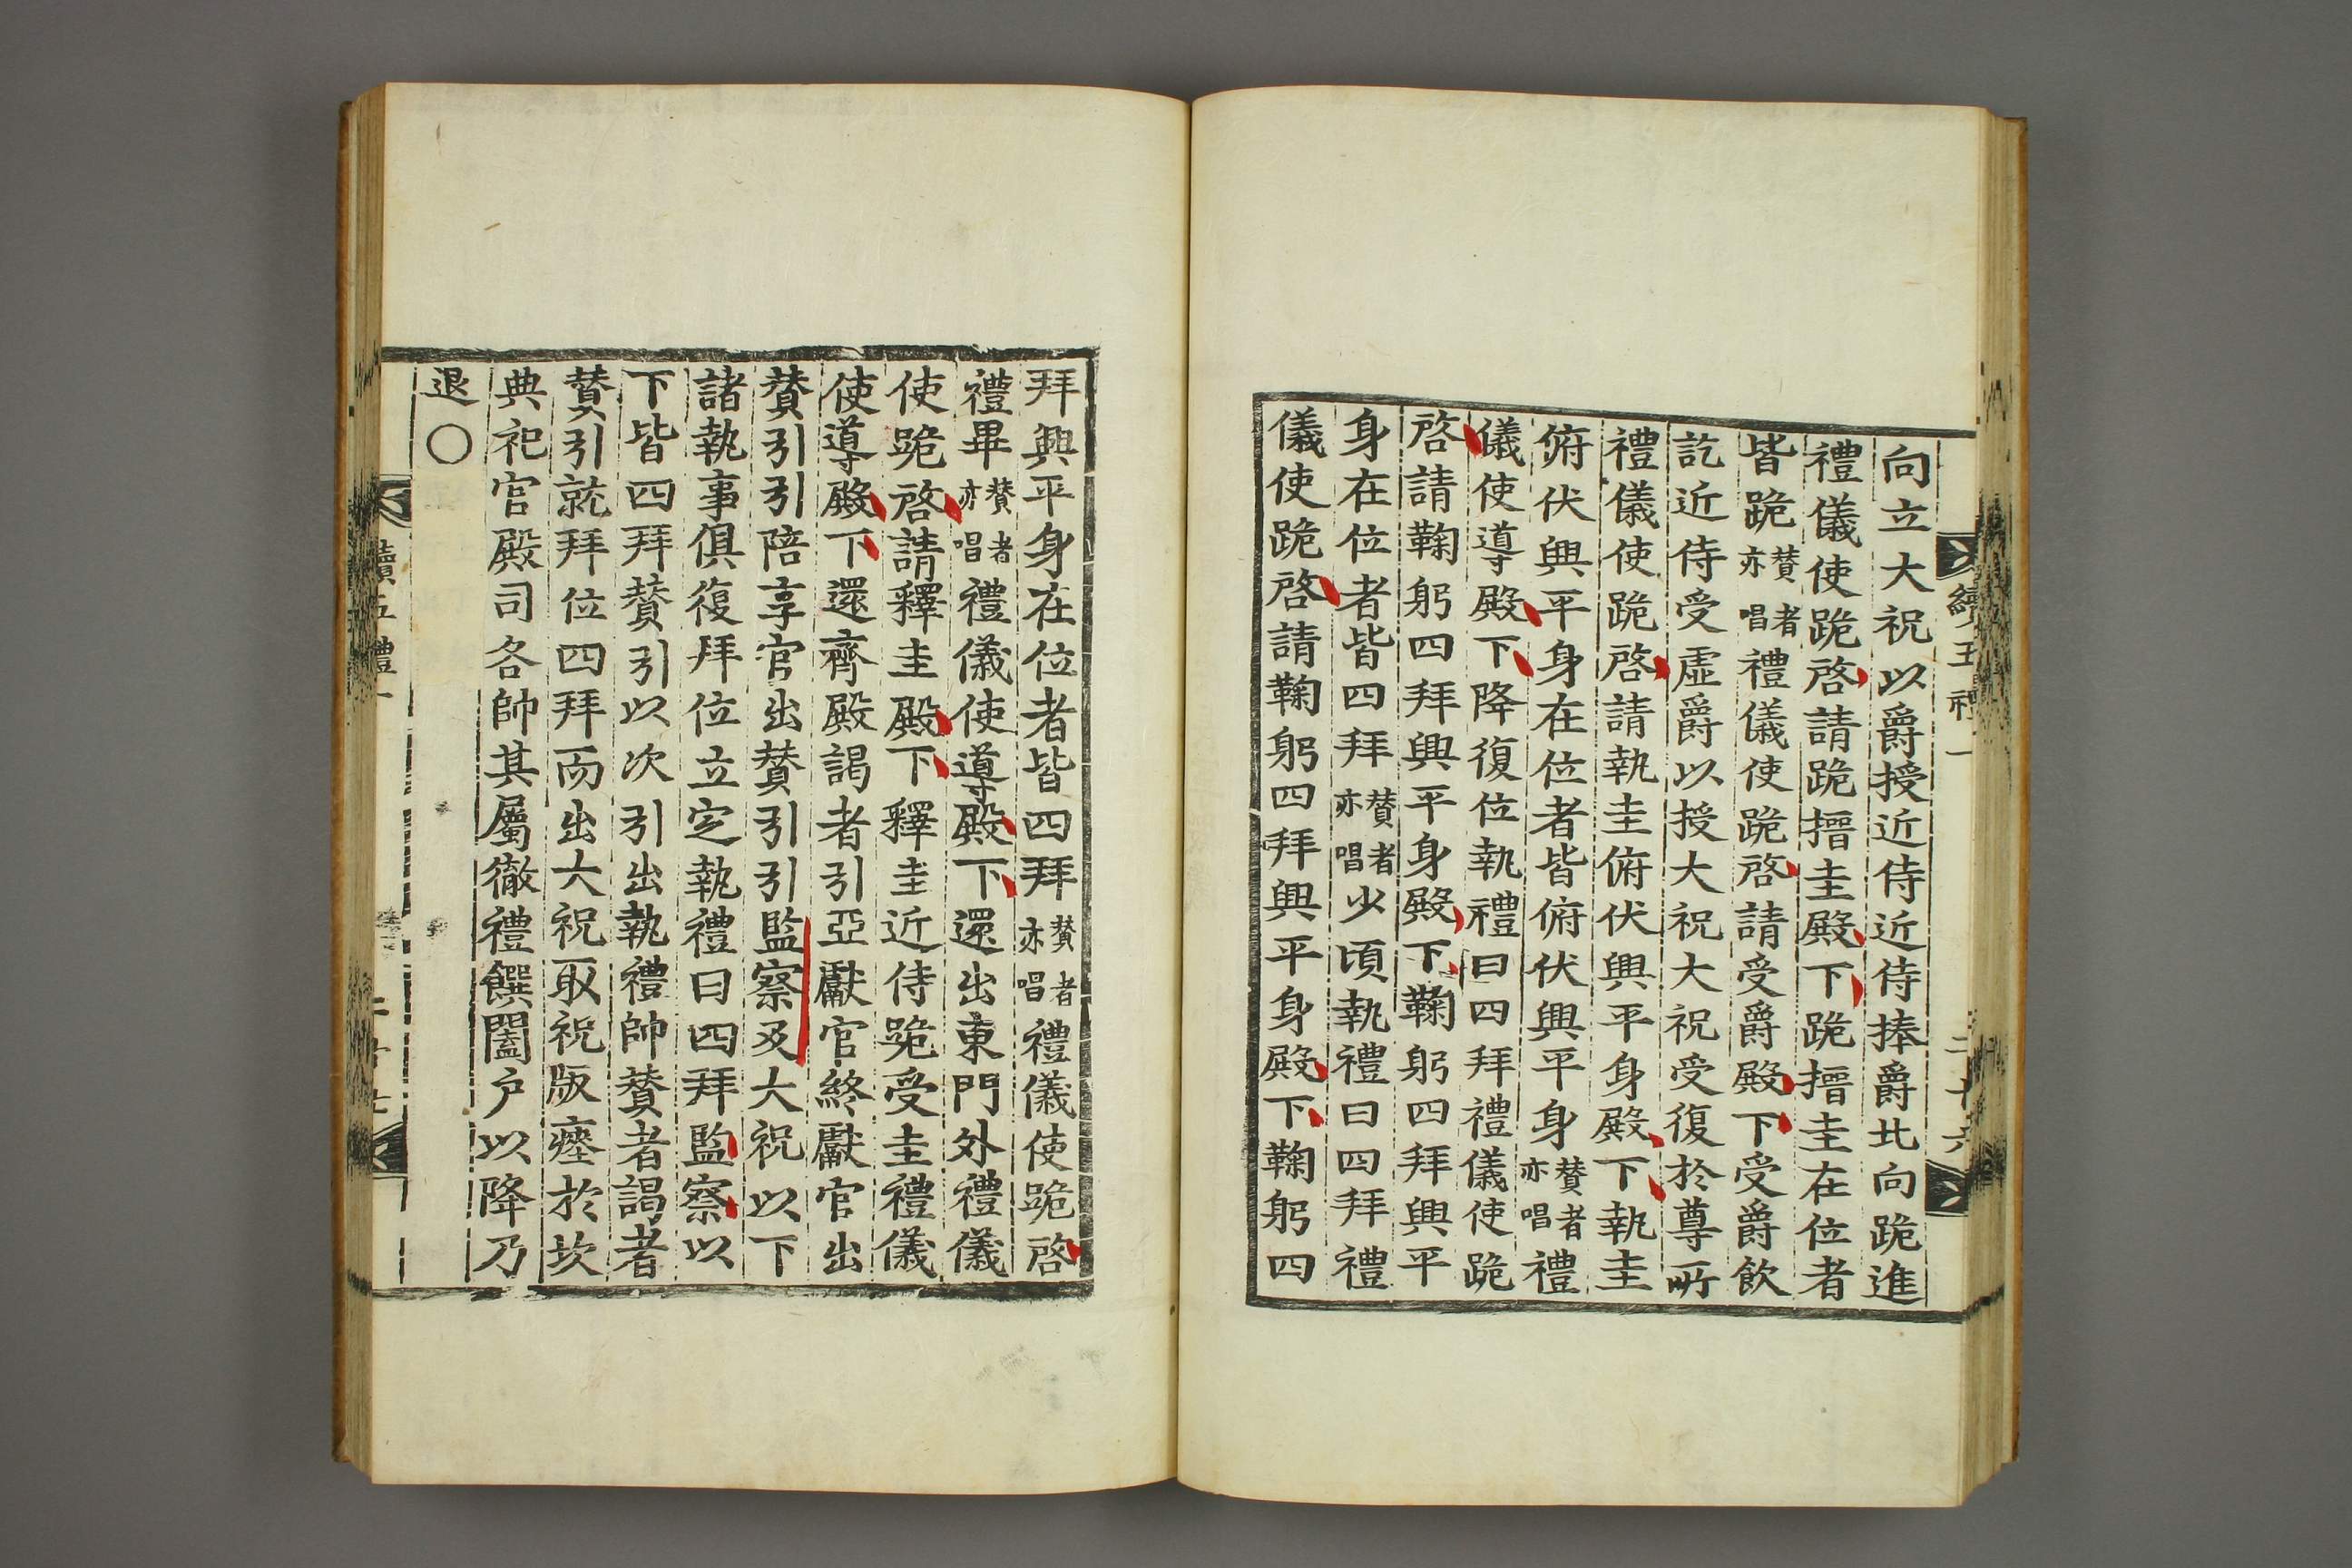 續五禮一
二十六
向立大祝以爵授近侍近侍捧爵北向跪進
禮儀使跪啓請跪搢圭殿下跪搢圭在位者
皆跪贊者亦唱禮儀使跪啓請受爵殿下受爵飮
訖近侍受虛爵以授大祝大祝受復於尊所
禮儀使跪啓請執圭俯伏興平身殿下執圭
俯伏興平身在位者皆俯伏興平身贊者亦唱禮
儀使導殿下降復位執禮曰四拜禮儀使跪
啓請鞠躬四拜興平身殿下鞠躬四拜興平
身在位者皆四拜贊者亦唱少頃執禮曰四拜禮
儀使跪啓請鞠躬四拜興平身殿下鞠躬四
拜興平身在位者皆四拜贊者亦唱禮儀使跪啓
禮畢贊者亦唱禮儀使導殿下還出東門外禮儀
使跪啓請釋圭殿下釋圭近侍跪受圭禮儀
使導殿下還齋殿謁者引亞獻官終獻官出
贊引引陪享官出贊引引監察及大祝以下
諸執事俱復拜位立定執禮曰四拜監察以
下皆四拜贊引以次引出執禮帥贊者謁者
贊引就拜位四拜而出大祝取祝版瘞於坎
典祀官殿司各帥其屬徹禮饌闔戶以降乃
退○
續五禮一